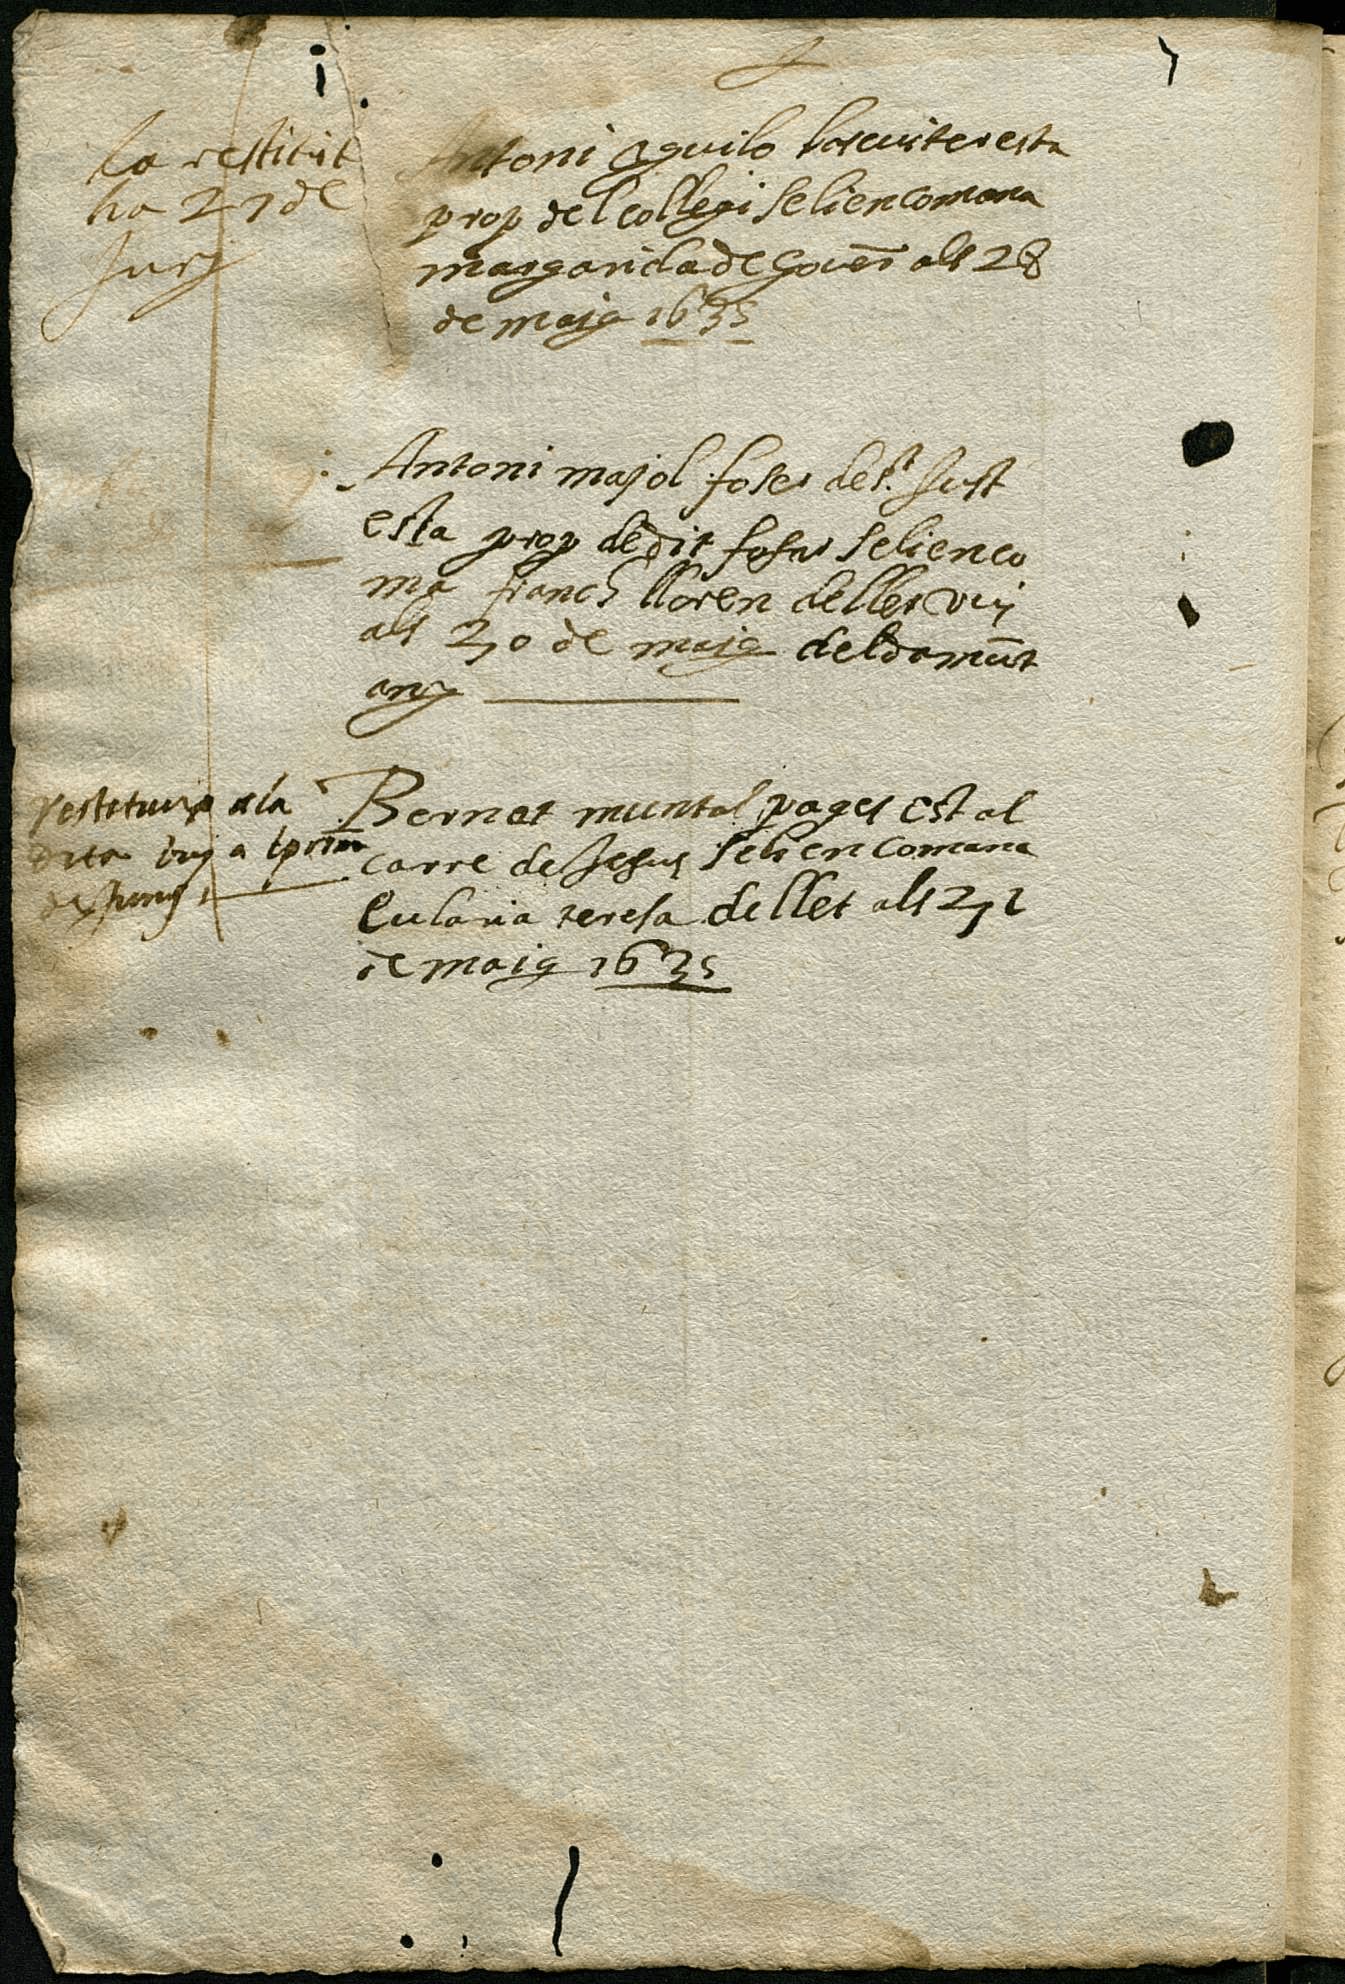 la restituit
ha 27 de
Juny
Antoni Aguilo bascuiter esta
prop del collegi seli encomana
margarida de Gover̃ als 28
de maig 1635
Antoni majol foser de St. Just
esta prop de dit fosar seli enco
ma franca lloren de llet
als 30 de maig del damũt
any
restituy a la
dita a
de Juny
Bernat muntal pages est al
carre de Jesus seli encomana
Eularia teresa de llet als 31
de maig 1635